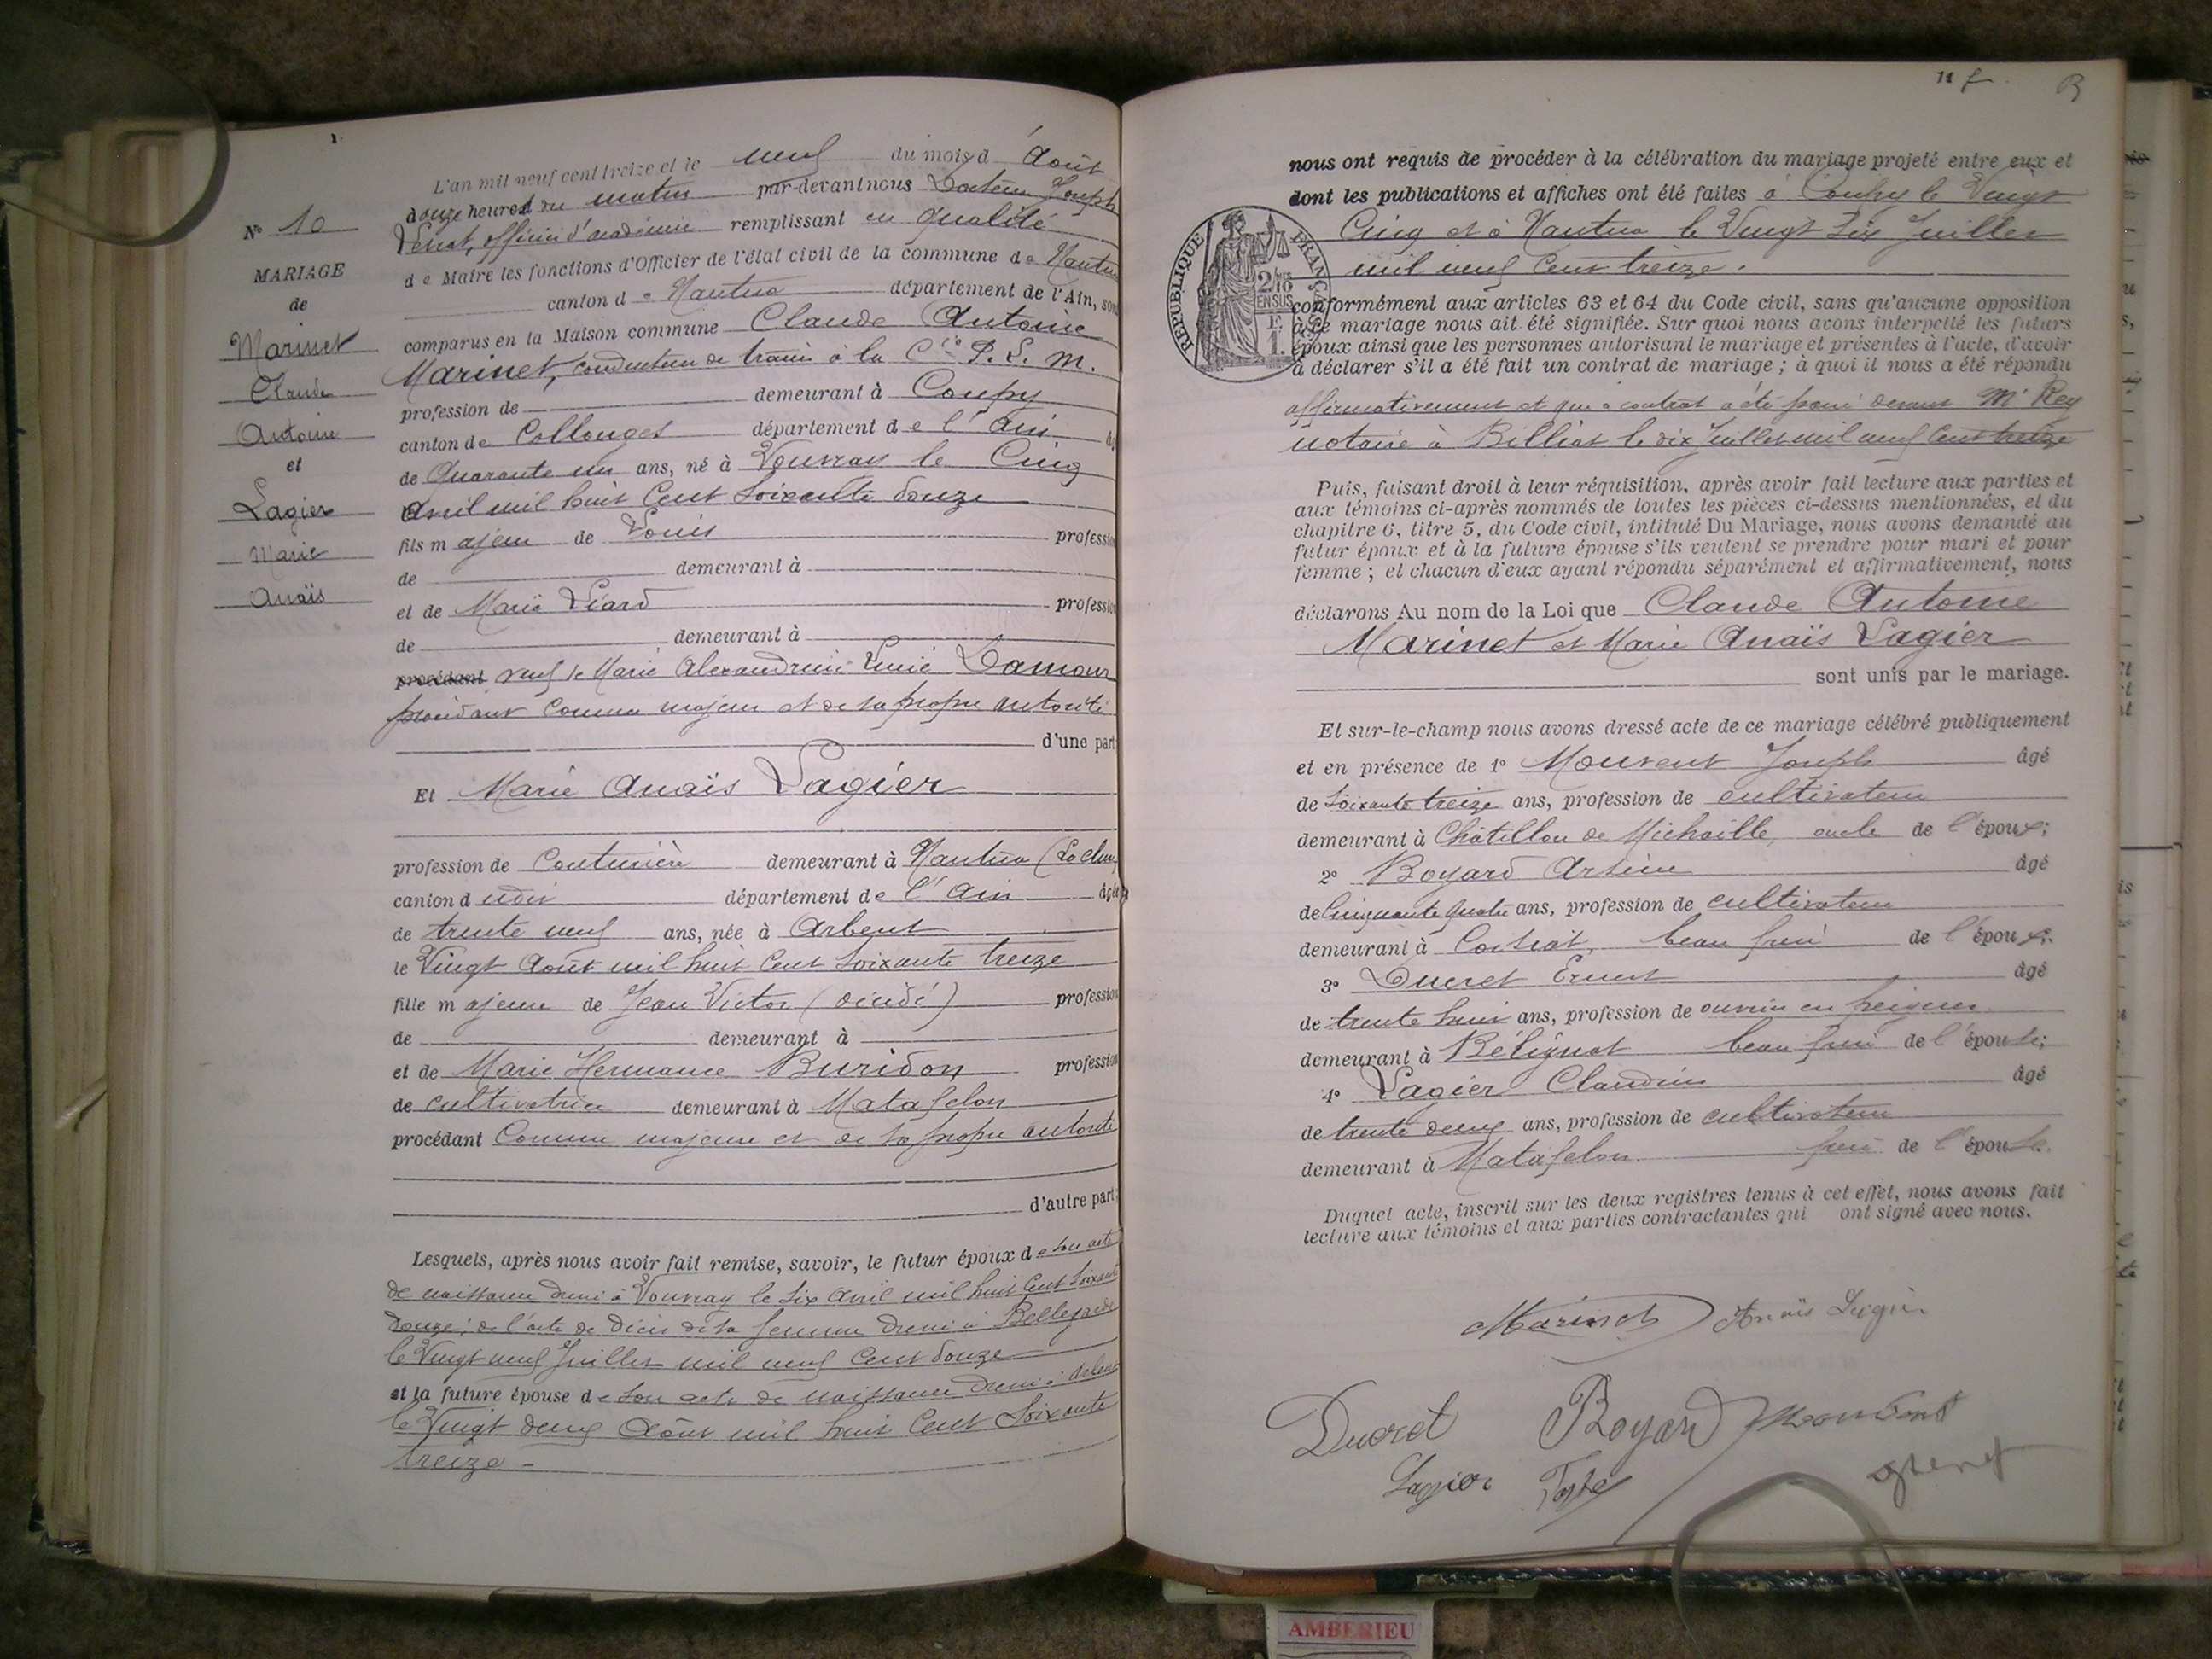 L'an mil neuf cent treize et le neuf du mois d'Août
douze heures du matin par-devant nous Docteur Joseph
officier d'académie remplissant en qualité
de Maire les fonctions d'Officier de l'état civil de la commune de Nantua
canton de Nantua département de l'Ain, sont
comparus en la Maison commune Claude Antoine
Marinet, conducteur de trains à la Cie P. L. M.
profession de demeurant à Coupy
canton de Collonges département de l'Ain
de Quarante un ans, né à Vouvray le Cinq
Avril mil huit Cent Soixante douze
fils majeur de Louis profession
de demeurant à
et de Marie Liard profession
de demeurant à
procédant veuf de Marie Alexandrine Lucie Damour
procédant comme majeur et de sa propre autorité
d'une part;
N° 10
MARIAGE
de
Marinet
Claude
Antoine
et
Lagier
Marie
Anaïs
Et Marie Anaïs Lagier
profession de Couturière demeurant à Nantua (La Cluse)
canton dudit département de l'Ain âgée
de trente neuf ans, née à Arbent
le Vingt Août mil huit Cent Soixante treize
fille majeure de Jean Victor (décédé) profession
de demeurant à
et de Marie Hermance Buridon profession
de cultivatrice demeurant à Matafelon
procédant Comme majeure et de sa propre autorité
d'autre part;
Lesquels, après nous avoir fait remise, savoir, le futur époux de son acte
de naissance dressé à Vouvray le Six Avril mil huit Cent Soixante
douze; de l'acte de décès de sa femme dressé à Bellegarde
le Vingt neuf Juillet mil neuf Cent douze
et la future épouse de son acte de naissance dressé à Arbent
le Vingt deux Août mil huit Cent Soixante
treize -
11
nous ont requis de procéder à la célébration du mariage projeté entre eux et
dont les publications et affiches ont été faites à Coupy le Vingt
Cinq et à Nantua le Vingt Six Juillet
mil neuf Cent treize.
RÉPUBLIQUE FRANÇAISE
2/10
EN SUS
F.
1.
conformément aux articles 63 et 64 du Code civil, sans qu'aucune opposition
à ce mariage nous ait été signifiée. Sur quoi nous avons interpellé les futurs
époux ainsi que les personnes autorisant le mariage et présentes à l'acte, d'avoir
à déclarer s'il a été fait un contrat de mariage; à quoi il nous a été répondu
affirmativement et que ce contrat a été passé devant Me Rey
notaire à Billiat le dix Juillet mil neuf Cent treize
Puis, faisant droit à leur réquisition, après avoir fait lecture aux parties et
aux témoins ci-après nommés de toutes les pièces ci-dessus mentionnées, et du
chapitre 6, titre 5, du Code civil, intitulé Du Mariage, nous avons demandé au
futur époux et à la future épouse s'ils veulent se prendre pour mari et pour
femme; et chacun d'eux ayant répondu séparément et affirmativement, nous
déclarons Au nom de la Loi que Claude Antoine
Marinet et Marie Anaïs Lagier
sont unis par le mariage.
Et sur-le-champ nous avons dressé acte de ce mariage célébré publiquement
et en présence de 1° Mouvent Joseph âgé
de Soixante treize ans, profession de cultivateur
demeurant à Châtillon de Michaille, oncle de l'époux;
2° Boyard Arsène âgé
de Cinquante quatre ans, profession de cultivateur
demeurant à beau frère de l'époux;
3° Ducret Ernest âgé
de trente huit ans, profession de ouvrier en peignes
demeurant à Bélignat beau frère de l'épouse;
4° Lagier Claudius âgé
de trente deux ans, profession de cultivateur
demeurant à Matafelon frère de l'épouse.
Duquel acte, inscrit sur les deux registres tenus à cet effet, nous avons fait
lecture aux témoins et aux parties contractantes qui ont signé avec nous.
Marinet Anaïs Lagier
Ducret Boyard Mouvent
Lagier
AMBERIEU